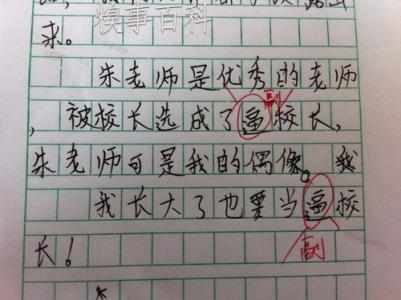 糗事百科
求。
朱老师是优秀的老师
副
,被校长选成了逼校长,
朱老师可是我的偶像。我
我长大了也要当逼校
副
长!